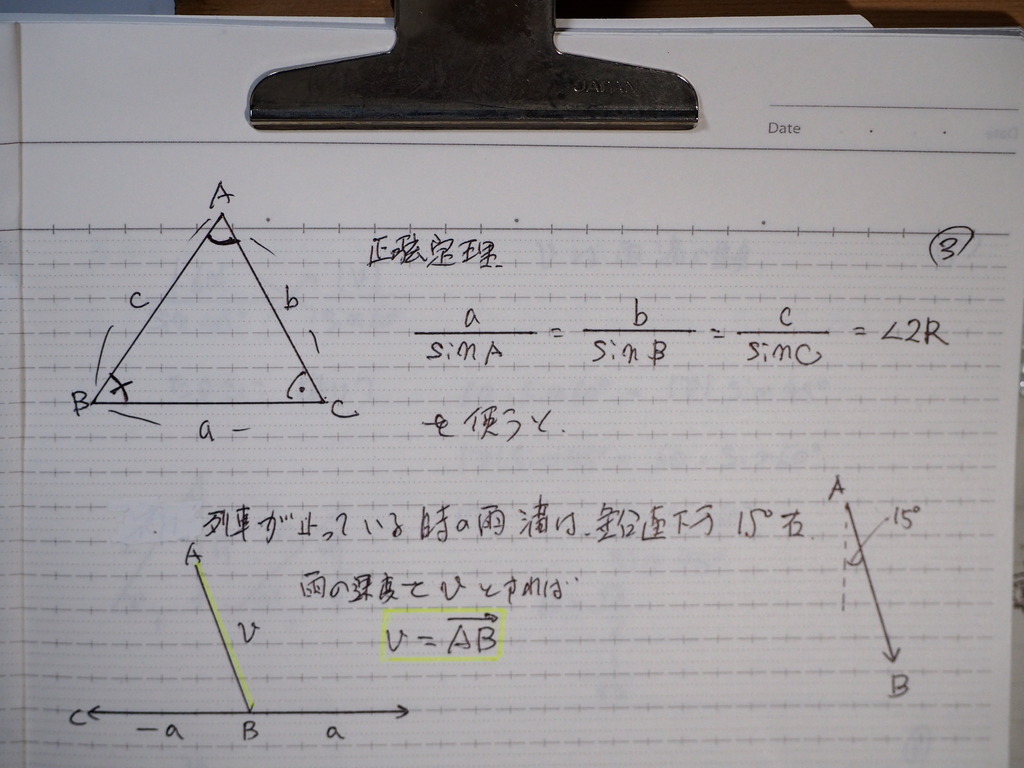 JAPAN
Date . .
A
正弦定理
③
c
b
a/sinA = b/sinB = c/sinC = ∠2R
B
C
a
を使うと.
列車が止っている時の雨滴は、鉛直下方 15°右.
A
15°
B
A
雨の速度を v とすれば
v
v = \overrightarrow{AB}
C
-a
B
a